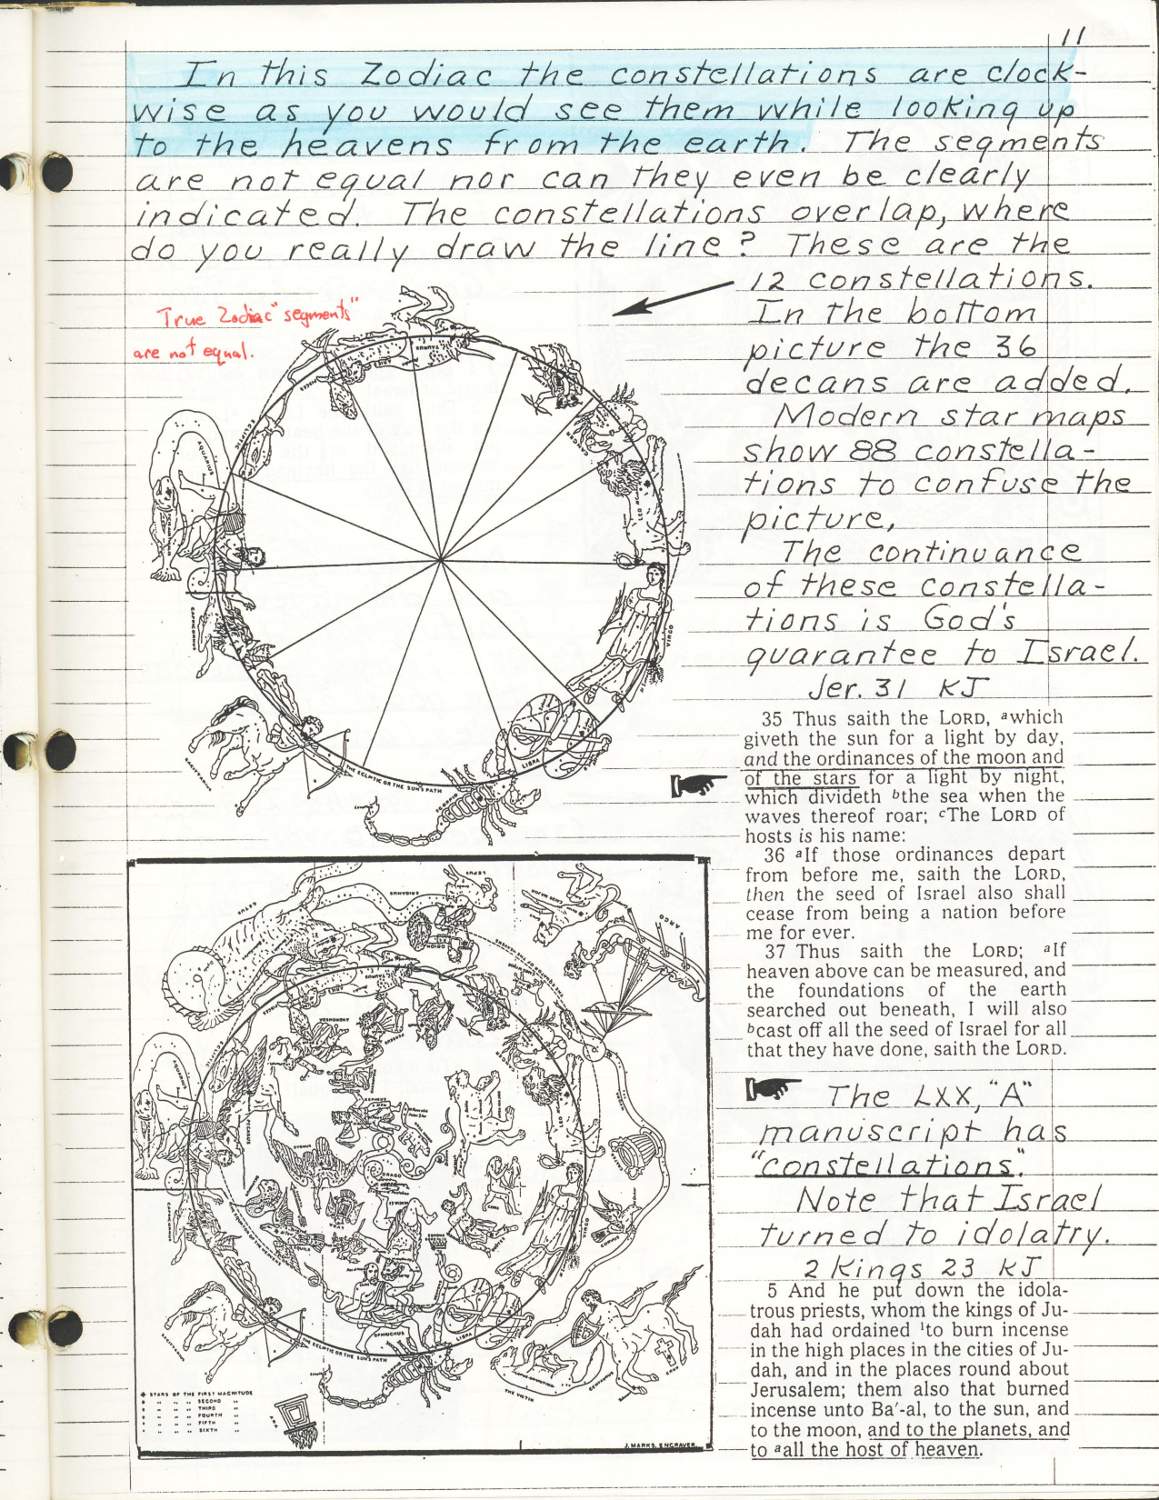 11
In this Zodiac the constellations are clock-
wise as you would see them while looking up
to the heavens from the earth. The segments
are not equal nor can they even be clearly
indicated. The constellations overlap, where
do you really draw the line? These are the
12 constellations.
In the bottom
picture the 36
decans are added.
Modern star maps
show 88 constella-
tions to confuse the
picture,
The continuance
of these constella-
tions is God's
guarantee to Israel.
Jer. 31 KJ
True Zodiac "segments"
are not equal.
TAURUS
ARIES
LEO
VIRGO
LIBRA
SCORPIO
SAGITTARIUS
CAPRICORNUS
AQUARIUS
THE ECLPTIC OR THE SUN'S PATH
35 Thus saith the LORD, ᵃwhich
giveth the sun for a light by day,
and the ordinances of the moon and
of the stars for a light by night,
which divideth ᵇthe sea when the
waves thereof roar; ᶜThe LORD of
hosts is his name:
36 ᵃIf those ordinances depart
from before me, saith the LORD,
then the seed of Israel also shall
cease from being a nation before
me for ever.
37 Thus saith the LORD; ᵃIf
heaven above can be measured, and
the foundations of the earth
searched out beneath, I will also
ᵇcast off all the seed of Israel for all
that they have done, saith the LORD.
The LXX, "A"
manuscript has
"constellations".
Note that Israel
turned to idolatry.
2 Kings 23 KJ
5 And he put down the idola-
trous priests, whom the kings of Ju-
dah had ordained ¹to burn incense
in the high places in the cities of Ju-
dah, and in the places round about
Jerusalem; them also that burned
incense unto Ba′-al, to the sun, and
to the moon, and to the planets, and
to ᵃall the host of heaven.
CETUS
ERIDANUS
LEPUS
ORION
ARGO
PERSEUS
PEGASUS
CYGNUS
DRACO
VIRGO
LIBRA
OPHIUCHUS
SCORPIO
SAGITTARIUS
THE ECLPTIC OR THE SUN'S PATH
THE VICTIM
CENTAURUS
ARA
STARS OF THE FIRST MAGNITUDE
" " " SECOND "
" " " THIRD "
" " " FOURTH "
" " " FIFTH "
" " " SIXTH "
J. MARKS, ENGRAVER.